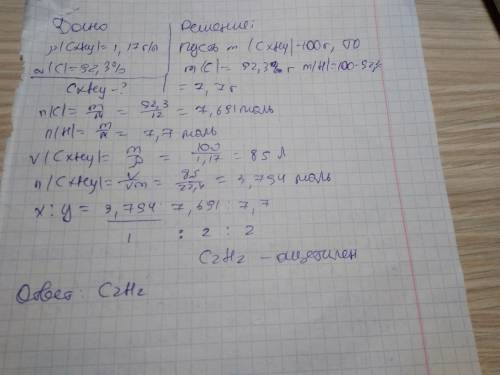 Дано
Решение:
ρ(CxHy)=1,17г/л
Пусть m(CxHy)-100г, то
ω(C)=92,3%
m(C)=92,3% г m(H)=100-92,3
CxHy-?
=7,7г
n(C)=m/M=92,3/12=7,691моль
n(H)=m/M=7,7моль
V(CxHy)=m/ρ=100/1,17=85л
n(CxHy)=V/Vm=85/22,4=3,794моль
x:y=3,794:7,691:7,7
1:2:2
C2H2-ацетилен
Ответ: C2H2